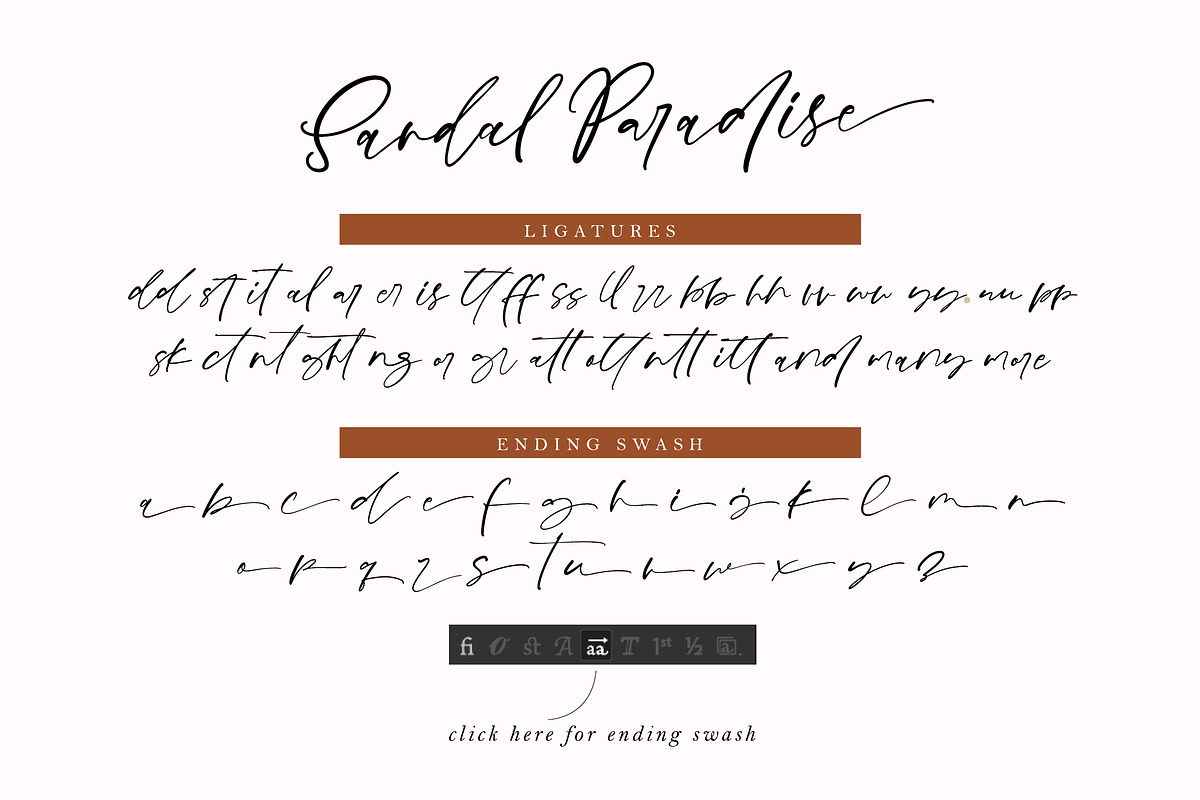 Sandal Paradise
LIGATURES
dd st it al ar er is tt ff ss ll rr bb hh vv ww yy nn pp
sk ct nt ght ng or gr att ott ntt itt and many more
ENDING SWASH
a b c d e f g h i j k l m n
o p q r s t u v w x y z
fi O st A aa T 1st ½ a
click here for ending swash